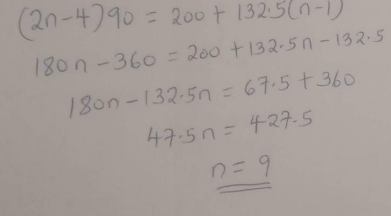 (2n-4)90 = 200 + 132.5(n-1)
180n - 360 = 200 + 132.5n - 132.5
180n - 132.5n = 67.5 + 360
47.5n = 427.5
n = 9